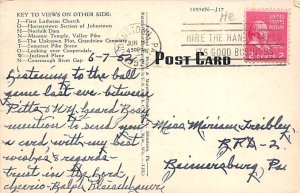 KEY TO VIEWS ON OTHER SIDE:
O—First Lutheran Church
J—Hornerstown Section of Johnstown
H—Norfolk Dam
M—Masonic Temple, Valley Pike
S—The Unknown Plot, Grandview Cemetery
T—Somerset Pike Scene
O—Looking over Coopersdale
W—Inclined Plane
N—Conemaugh River Gap
10850N—J17
JUN
HIRE THE HAN
IT'S GOOD BUS
2 CENTS 2
POST CARD
6-7-54
Listening to the ball
game last eve. between
Pitts & N.Y. heard Bob
mention to send you
a card with my best
wishes & regards.
trust in the Lord
Ralph Fleischhauer
Miss Miriam Traibley
R.F.D-2
Rimersburg, Pa